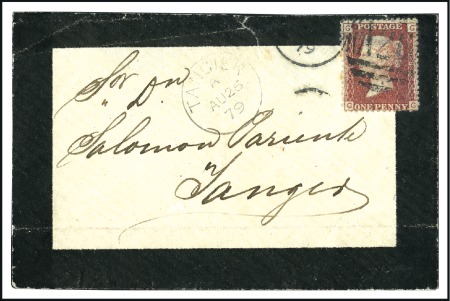 Sor Dn.
Salomon Pariente
Tanger
TANGIER
A
AU 26
79
79
POSTAGE
ONE PENNY
G G
G G